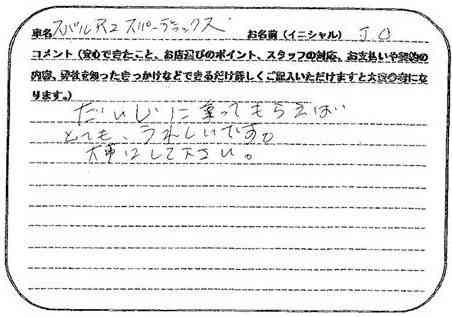 車名 スバル R2 スーパーデラックス お名前(イニシャル) J.O
コメント(安心できたこと、お店選びのポイント、スタッフの対応、お支払いや契約の
内容、弊社を知ったきっかけなどできるだけ詳しくご記入いただけますと大変参考にな
ります。)
だいじに乗ってもらえれば
とても、うれしいです。
大事にして下さい。